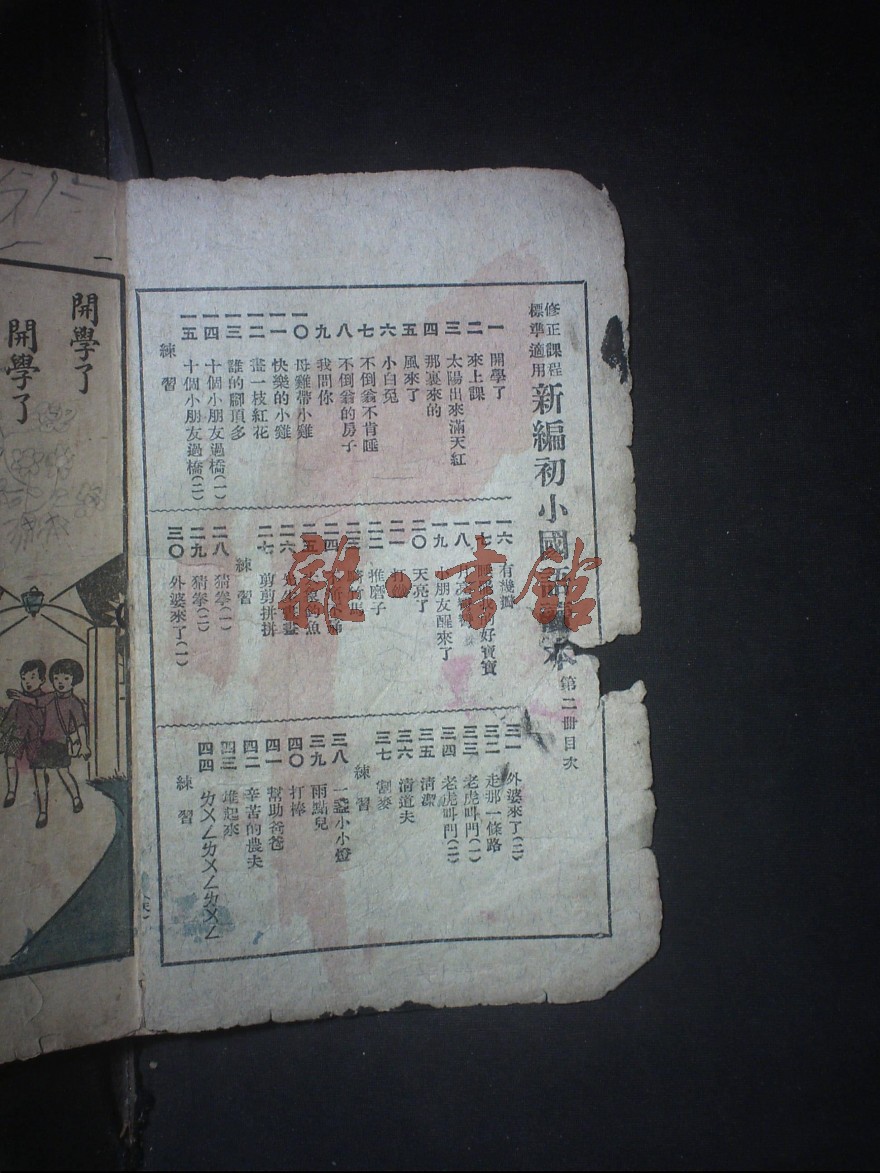 修正課程標準適用 新編初小國語讀本 第二冊目次
一 開學了
二 來上課
三 太陽出來滿天紅
四 那裏來的
五 風來了
六 小白兔
七 不倒翁不肯睡
八 不倒翁的房子
九 我問你
一〇 母雞帶小雞
一一 快樂的小雞
一二 畫一枝紅花
一三 誰的腳頂多
一四 十個小朋友過橋(一)
一五 十個小朋友過橋(二)
練習
一六 有幾瓣
一七 好寶寶
一八
一九 小朋友醒來了
二〇 天亮了
二一 打
二二 推磨子
二三 馬
二四
二五 魚
二六 畫
二七 剪剪拼拼
練習
二八 猜拳(一)
二九 猜拳(二)
三〇 外婆來了(一)
三一 外婆來了(二)
三二 走那一條路
三三 老虎叫門(一)
三四 老虎叫門(二)
三五 清潔
三六 清道夫
三七 割麥
練習
三八 一盞小小燈
三九 雨點兒
四〇 打棒
四一 幫助爸爸
四二 辛苦的農夫
四三 堆起來
四四 ㄌㄨㄥㄌㄨㄥㄌㄨㄥ
練習
雜·書館
一
開學了
開學了